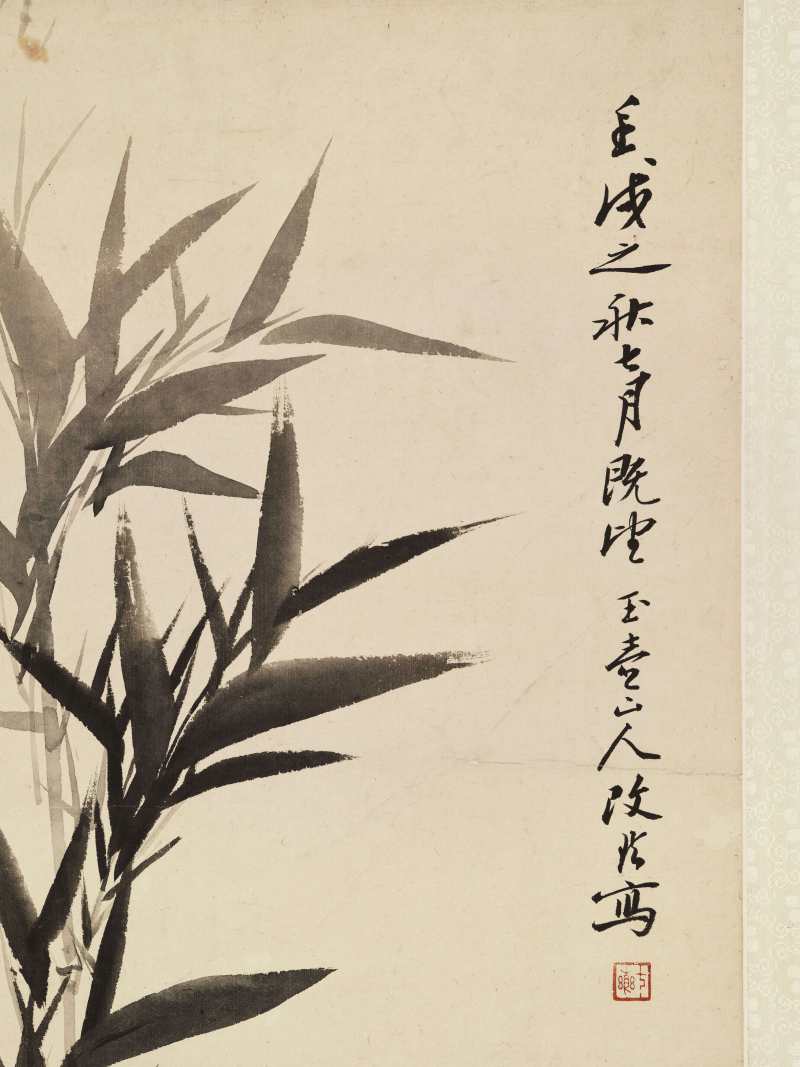 壬戌之秋七月既望玉壺山人改琦寫